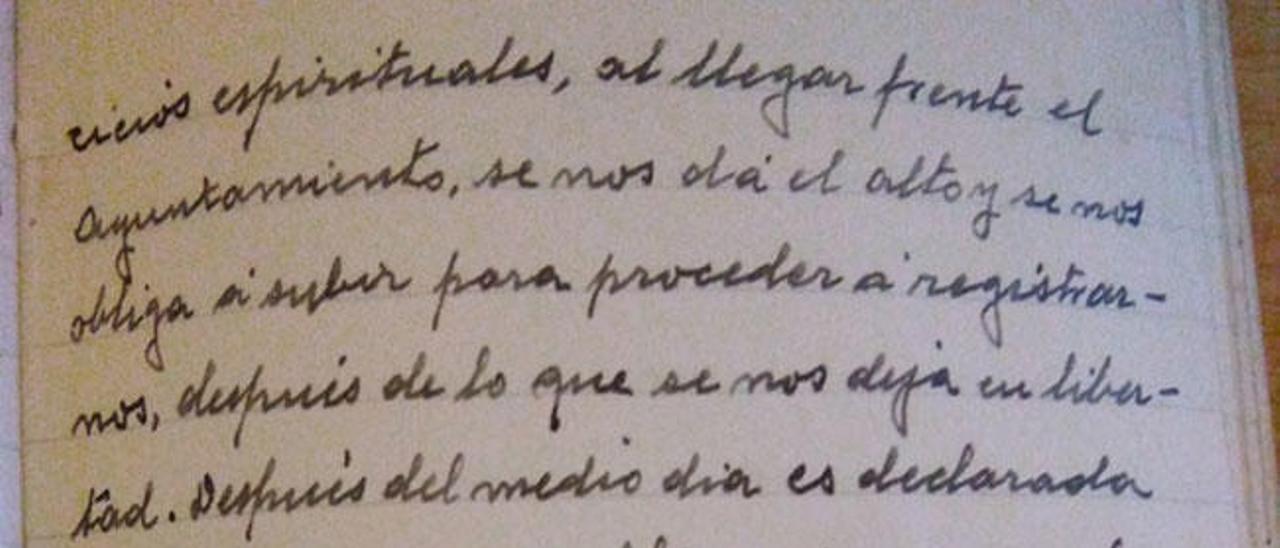 cicios espirituales, al llegar frente el
Ayuntamiento, se nos dá el alto y se nos
obliga á subir para proceder á registrar-
nos, después de lo que se nos deja en liber-
tad. Después del medio dia es declarada